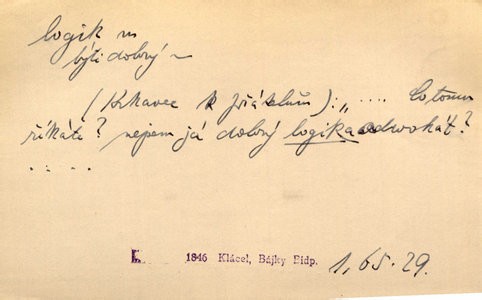 logik m
býti dobrý ~
(Krkavec k přátelům): „ .... Co tomu
říkáte? nejsem já dobrý logik a adwokát?
.. ...
1846 Klácel, Bájky Bidp. 1, 65. 29.